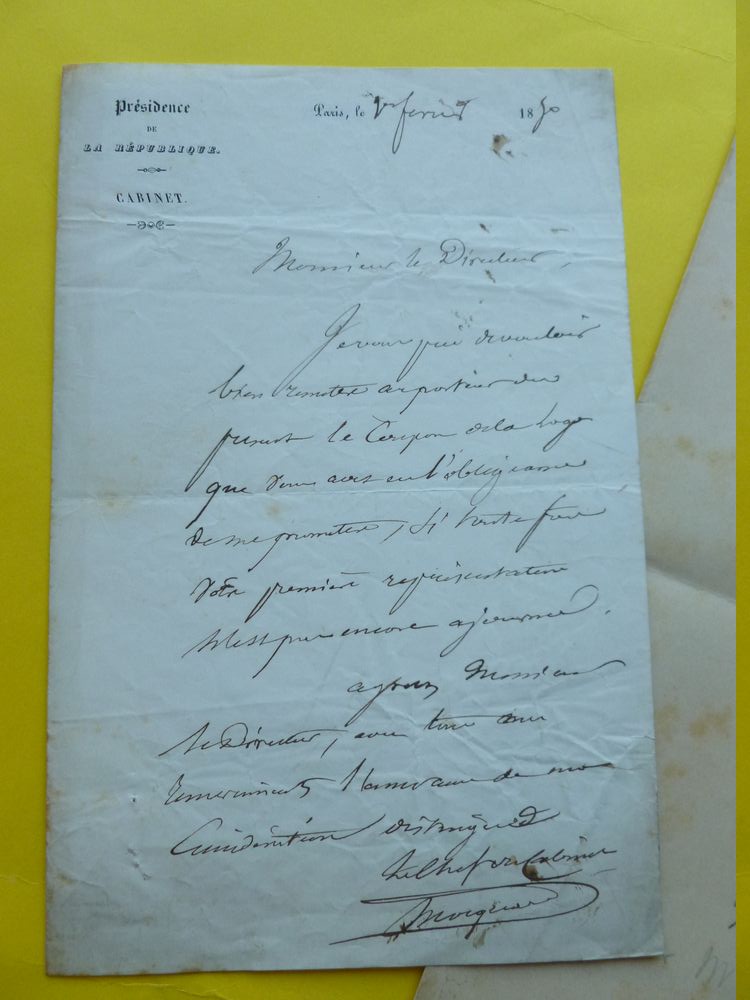 Présidence
DE
LA RÉPUBLIQUE.
CABINET.
Paris, le 1er février 1850
Monsieur le Directeur,
Je vous prie de vouloir
bien remettre au porteur du
présent le Coupon de la loge
que vous avez eu l'obligeance
de me promettre, si toute fois
votre première représentation
n'est pas encore ajournée.
agréez Monsieur
le Directeur, avec tous mes
remerciments l'assurance de ma
Considération distinguée
Le Chef du Cabinet
Mocquard